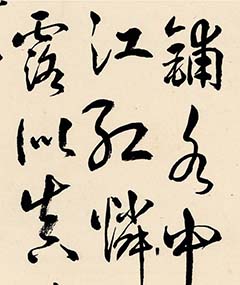 鋪水中
江紅憐
露似真